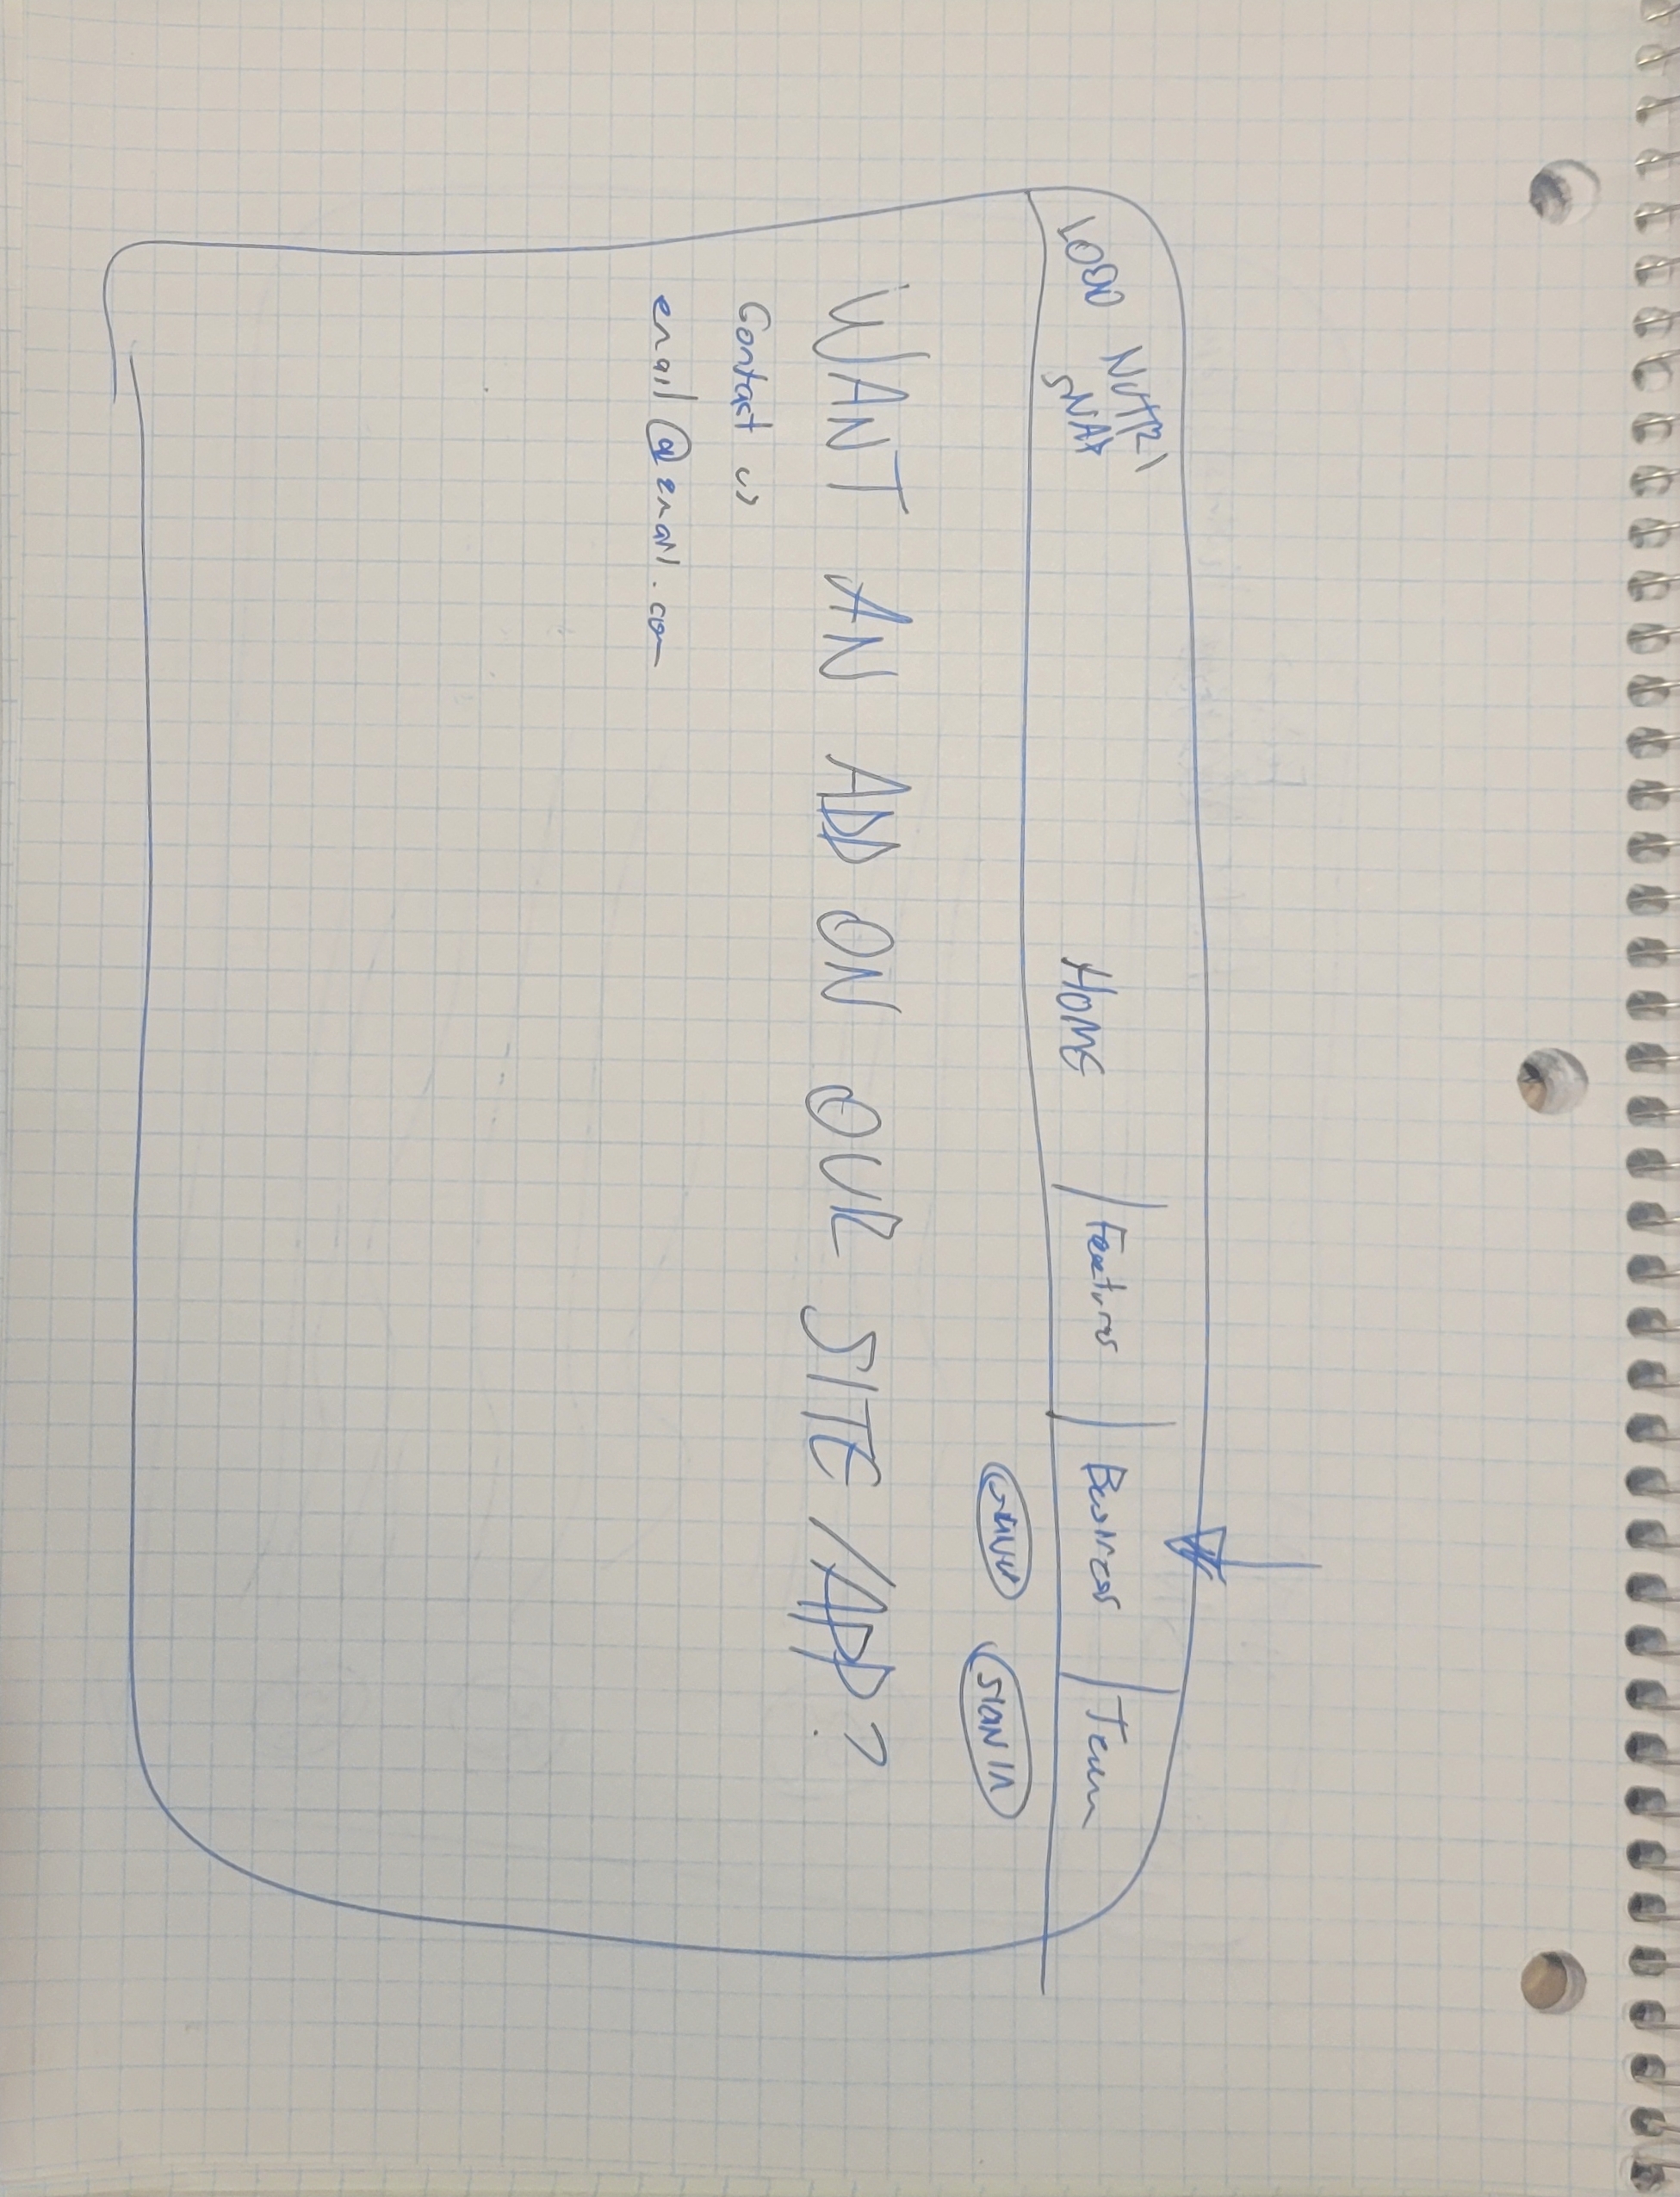 LOGO NUTRI
SNAP
HOME | Features | Business | Team
SIGN IN
WANT AN ADD ON OUR SITE / APP?
Contact us
email@email.com